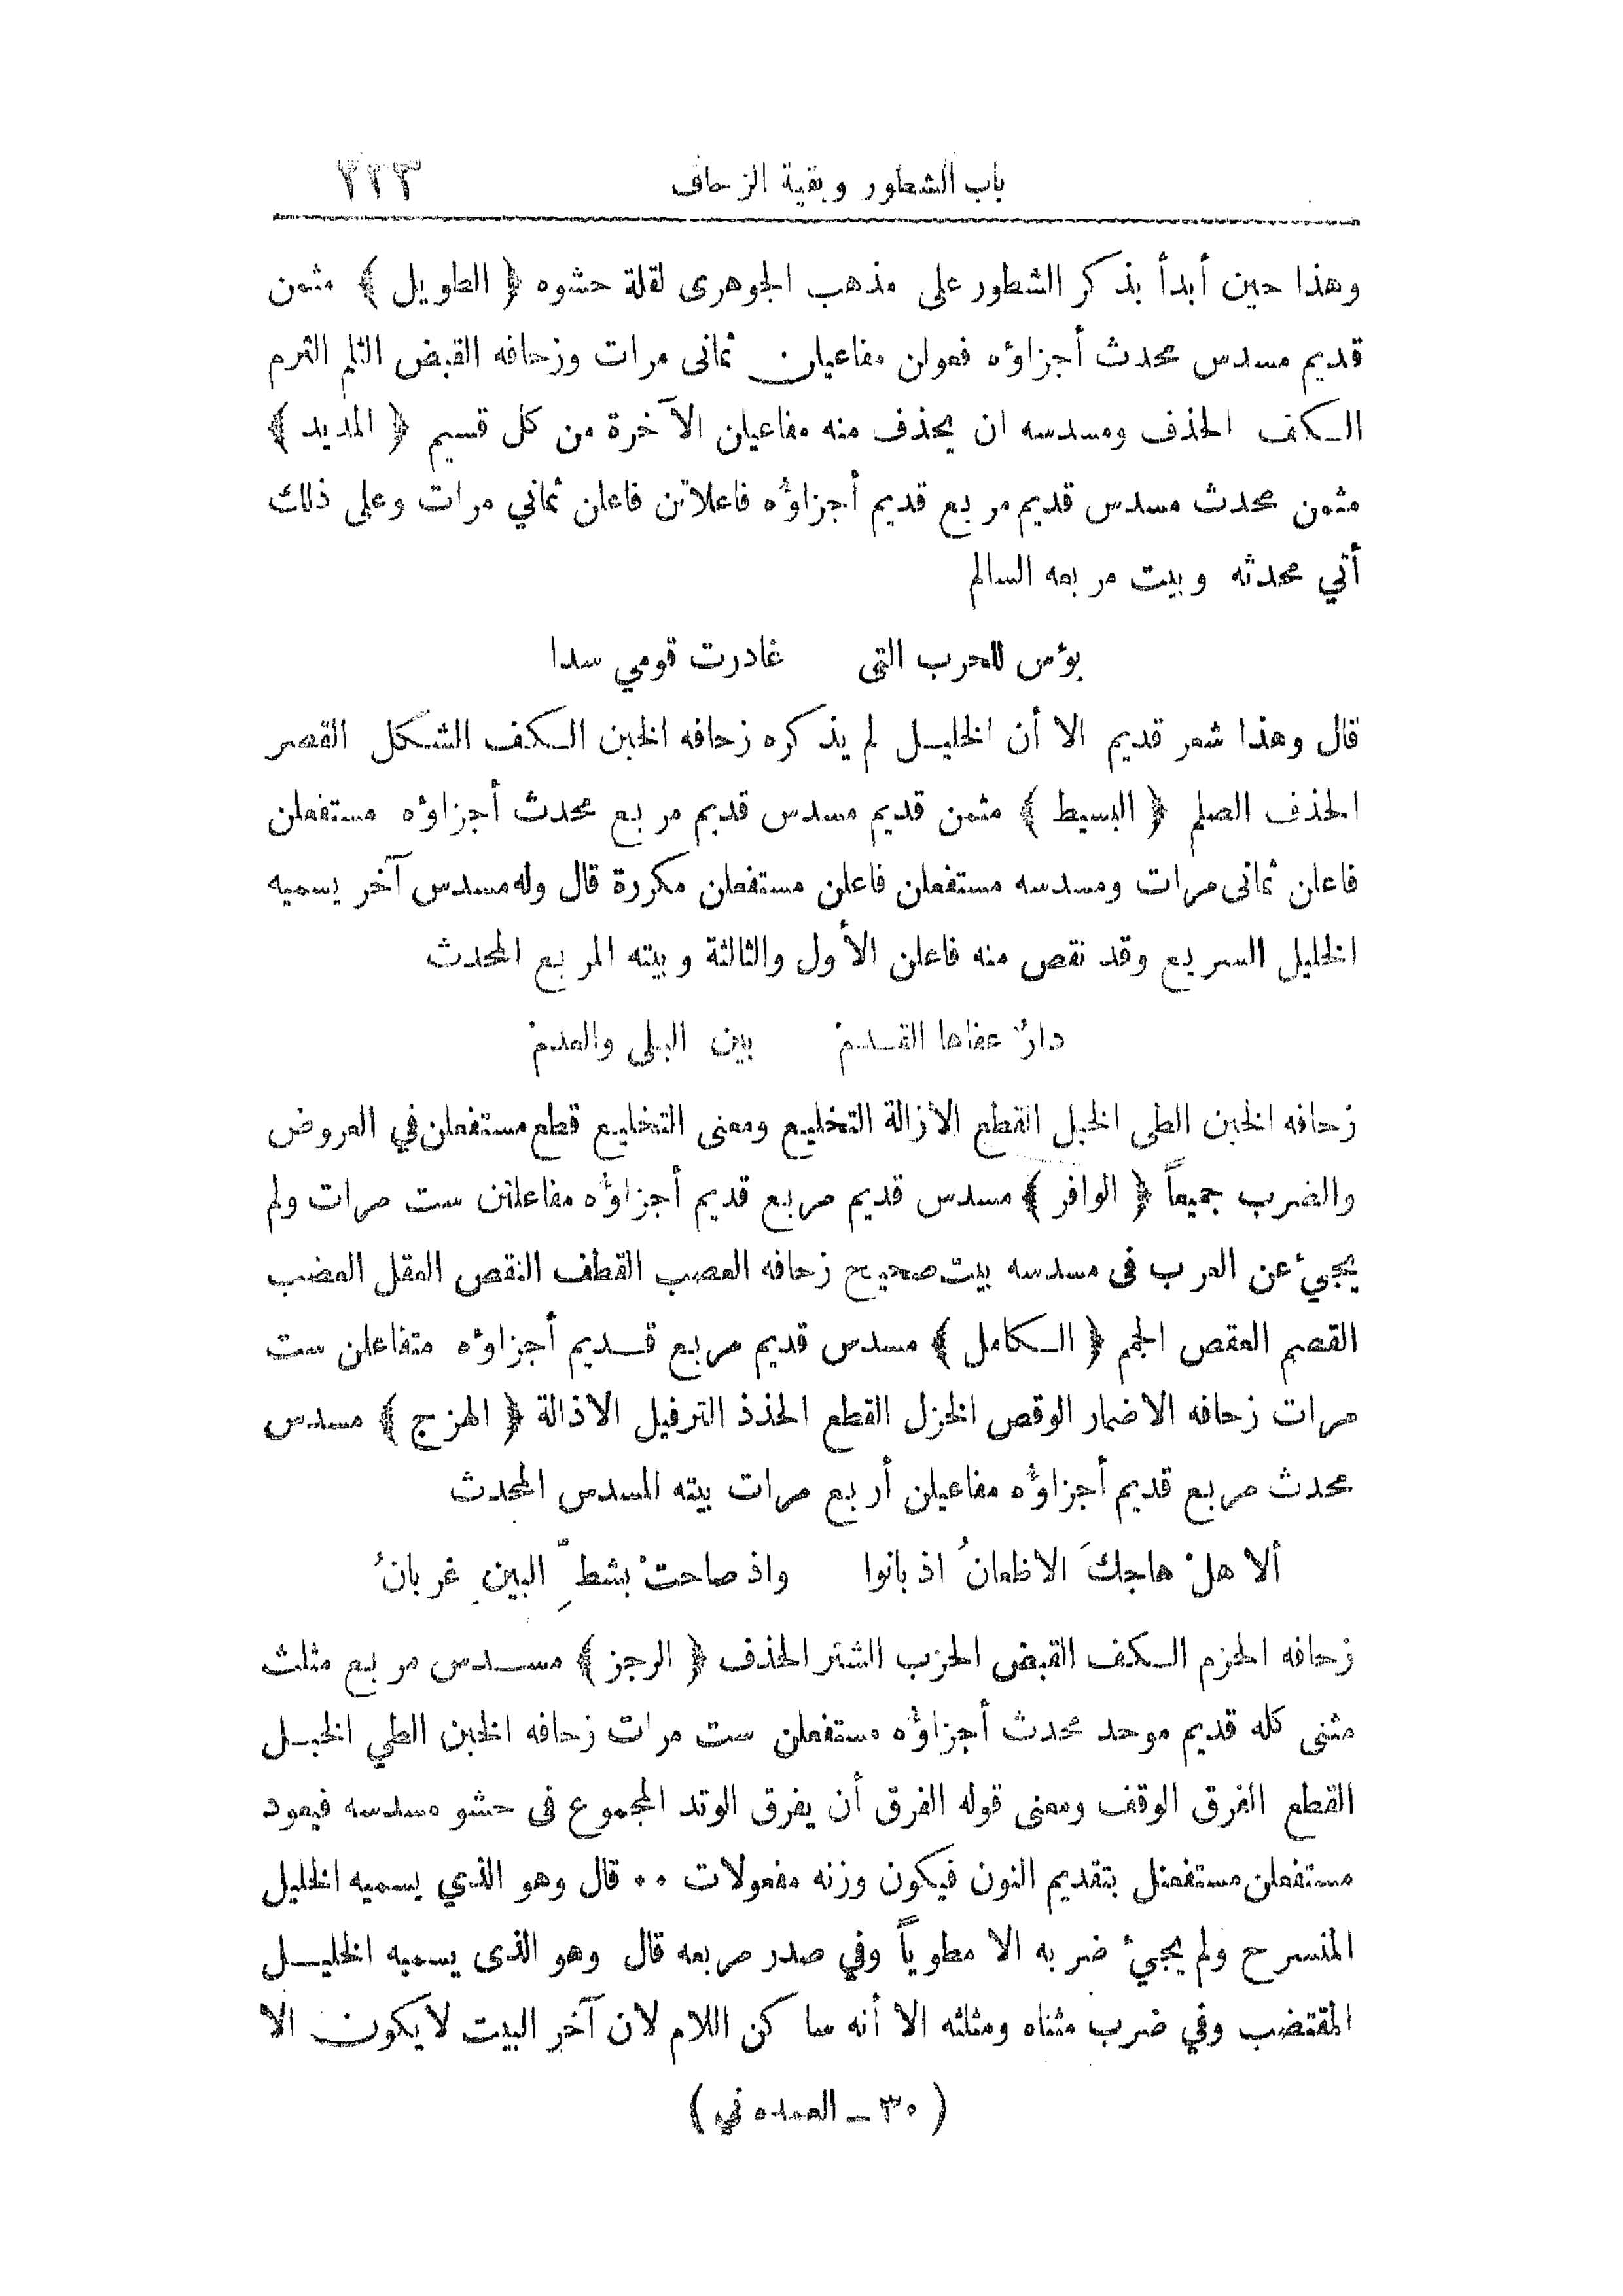 باب الشطور وبقية الزحاف ٢٣٣
وهذا حين أبدأ بذكر الشطور على مذهب الجوهرى لقلة حشوه ﴿ الطويل ﴾ مثمن
قديم مسدس محدث أجزاؤه فعولن مفاعيلن ثمانى مرات وزحافه القبض الثلم الثرم
الكف الحذف ومسدسه ان يحذف منه مفاعيلن الآخرة من كل قسيم ﴿ المديد ﴾
مثمن محدث مسدس قديم مربع قديم أجزاؤه فاعلاتن فاعلن ثماني مرات وعلى ذلك
أتي محدثه وبيت مربعه السالم
بؤس للحرب التى غادرت قومي سدا
قال وهذا شعر قديم الا أن الخليل لم يذكره زحافه الخبن الكف الشكل القصر
الحذف الصلم ﴿ البسيط ﴾ مثمن قديم مسدس قديم مربع محدث أجزاؤه مستفعلن
فاعلن ثمانى مرات ومسدسه مستفعلن فاعلن مستفعلن مكررة قال وله مسدس آخر يسميه
الخليل السريع وقد نقص منه فاعلن الأول والثالثة وبيته المربع المحدث
دارٌ عفاها القدمْ بين البلى والعدمْ
زحافه الخبن الطى الخبل القطع الازالة التخليع ومعنى التخليع قطع مستفعلن في العروض
والضرب جميعاً ﴿ الوافر ﴾ مسدس قديم مربع قديم أجزاؤه مفاعلتن ست مرات ولم
يجيئ عن العرب فى مسدسه بيت صحيح زحافه العصب القطف النقص العقل العضب
القصم العقص الجم ﴿ الكامل ﴾ مسدس قديم مربع قديم أجزاؤه متفاعلن ست
مرات زحافه الاضمار الوقص الخزل القطع الحذذ الترفيل الاذالة ﴿ الهزج ﴾ مسدس
محدث مربع قديم أجزاؤه مفاعيلن أربع مرات بيته المسدس المحدث
ألا هلْ هاجكَ الاظعانُ اذ بانوا واذ صاحتْ بشطِّ البينِ غربانُ
زحافه الخزم الكف القبض الخرب الشتر الحذف ﴿ الرجز ﴾ مسدس مربع مثلث
مثنى كله قديم موحد محدث أجزاؤه مستفعلن ست مرات زحافه الخبن الطي الخبل
القطع الفرق الوقف ومعنى قوله الفرق أن يفرق الوتد المجموع فى حشو مسدسه فيعود
مستفعلن مستفعنل بتقديم النون فيكون وزنه مفعولات ٠٠ قال وهو الذي يسميه الخليل
المنسرح ولم يجيئ ضربه الا مطوياً وفي صدر مربعه قال وهو الذى يسميه الخليل
المقتضب وفي ضرب مثناه ومثلثه الا أنه ساكن اللام لان آخر البيت لا يكون الا
( ٣٠ ــ العمده ني )